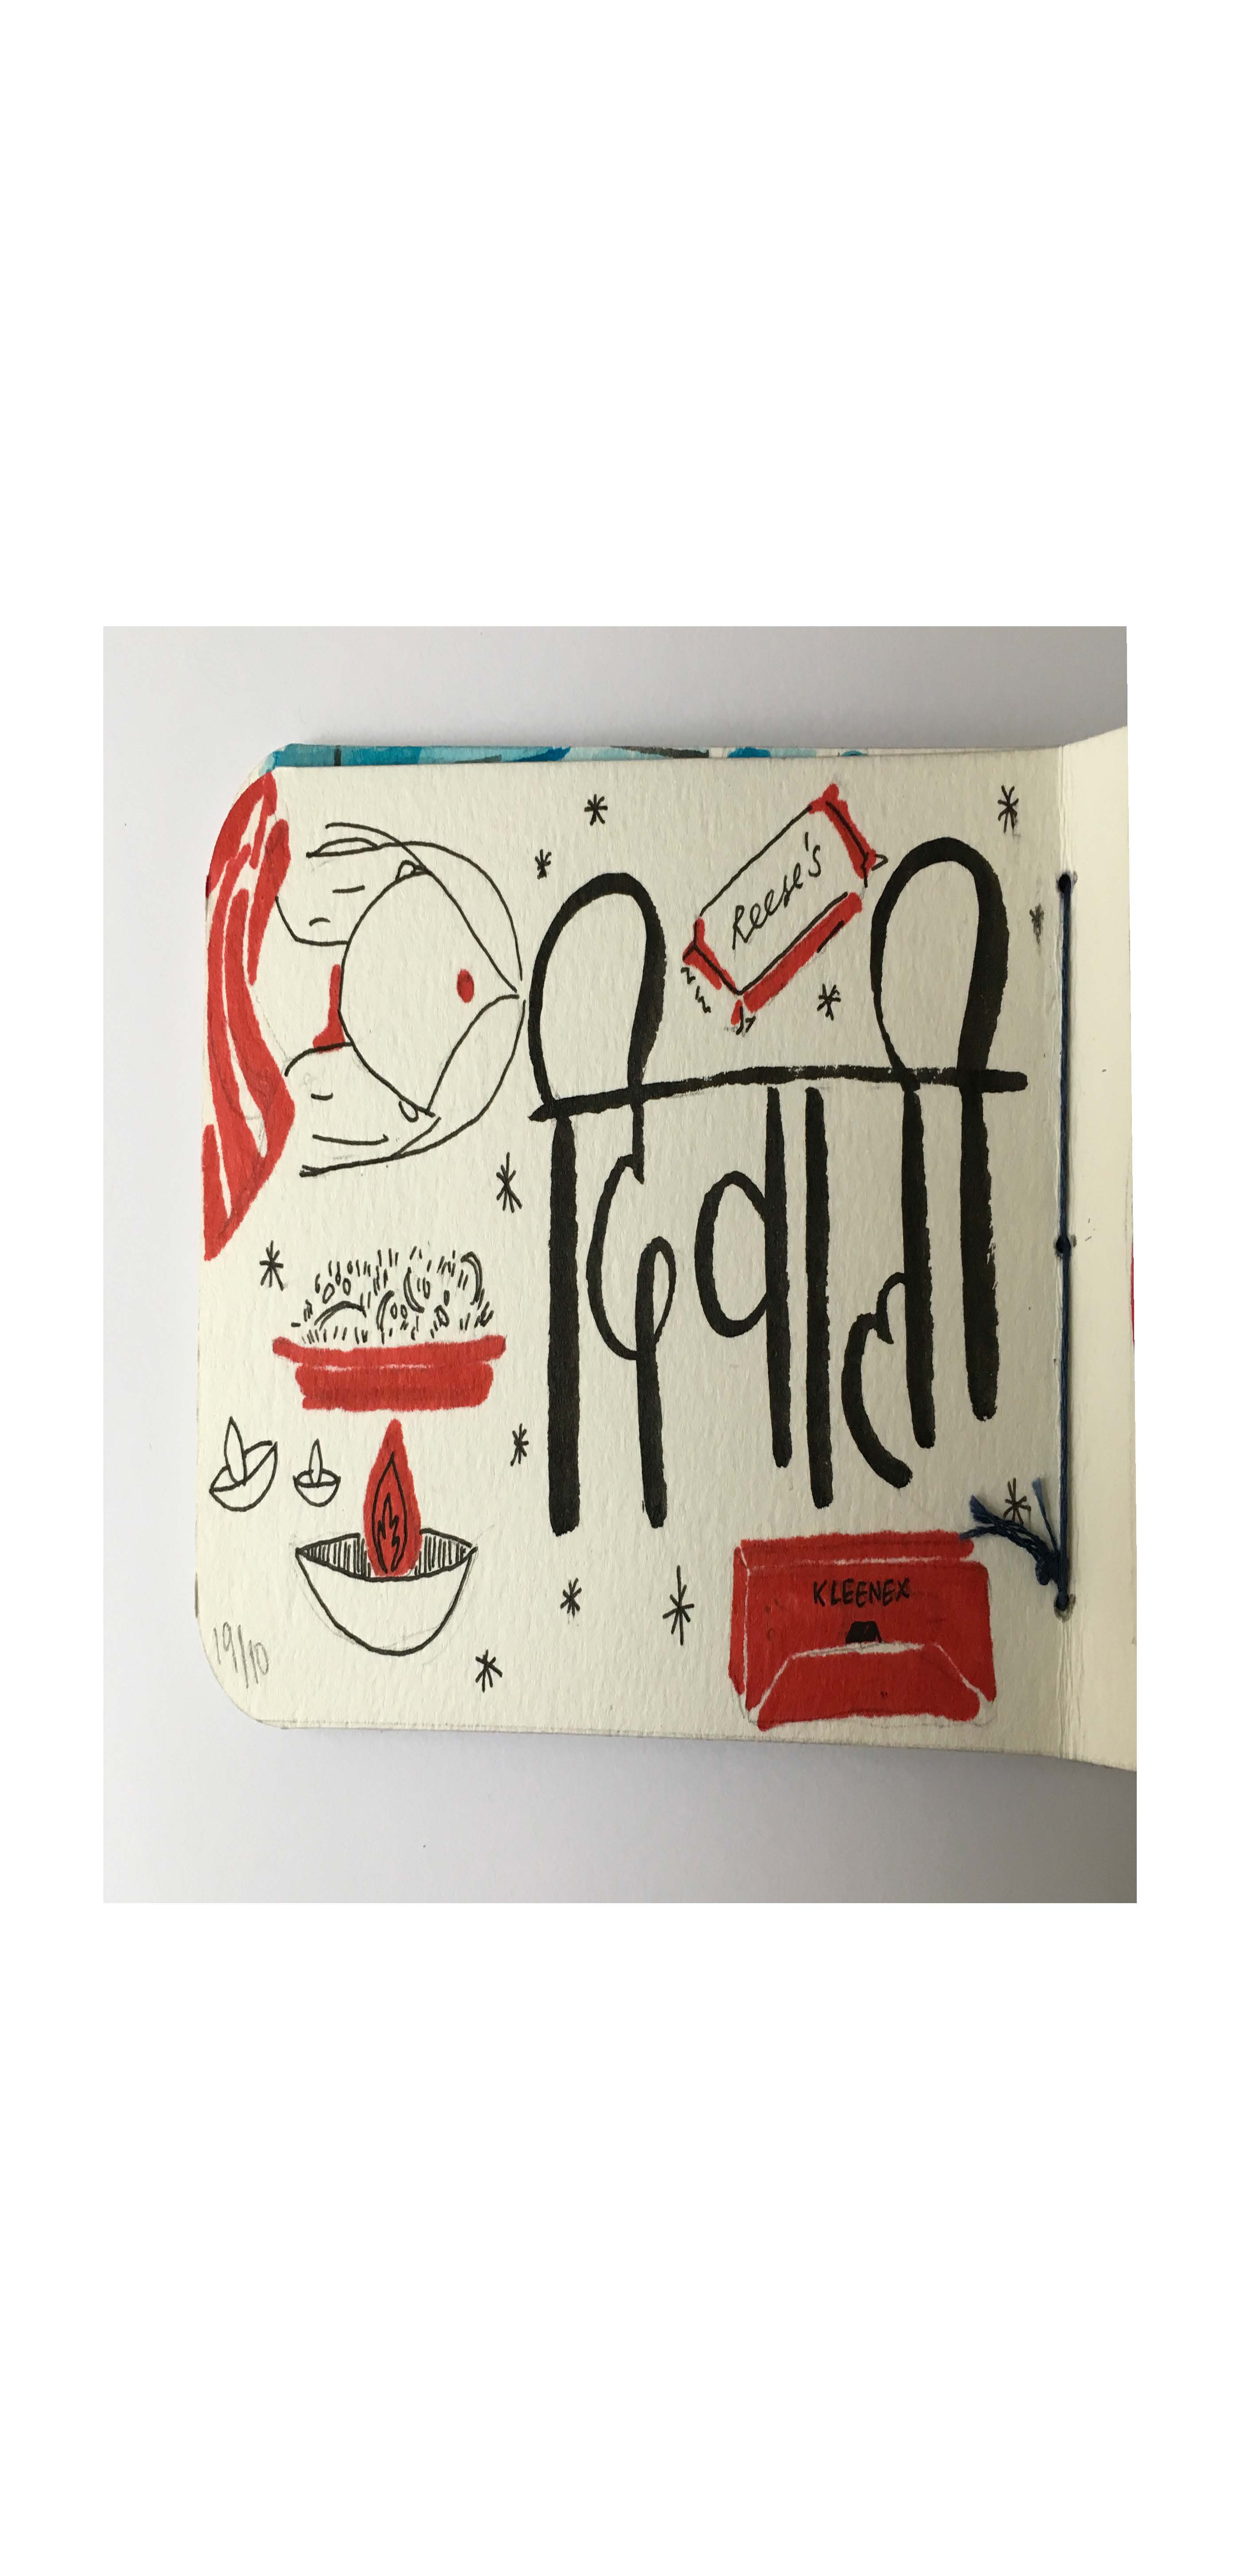 Reese's
दिवाली
KLEENEX
19/10